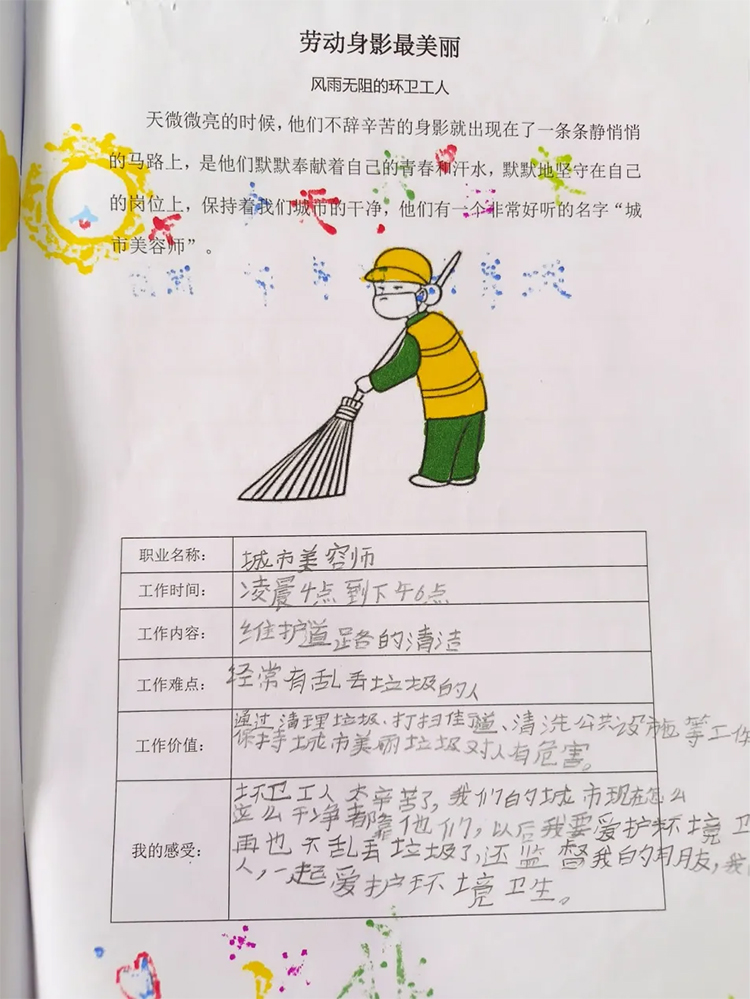 劳动身影最美丽
风雨无阻的环卫工人
天微微亮的时候，他们不辞辛苦的身影就出现在了一条条静悄悄
的马路上，是他们默默奉献着自己的青春和汗水，默默地坚守在自己
的岗位上，保持着我们城市的干净，他们有一个非常好听的名字“城
市美容师”。
职业名称： 城市美容师
工作时间： 凌晨4点到下午6点
工作内容： 维护道路的清洁
工作难点： 经常有乱丢垃圾的人
工作价值：
通过清理垃圾、打扫、清洗公共设施等工作
保持城市美丽垃圾对人有危害。
我的感受：
环卫工人太辛苦了，我们的城市现在怎么
这么干净都靠他们，以后我要爱护环境卫
再也不乱丢垃圾了，还监督我的朋友，我
人，一起爱护环境卫生。